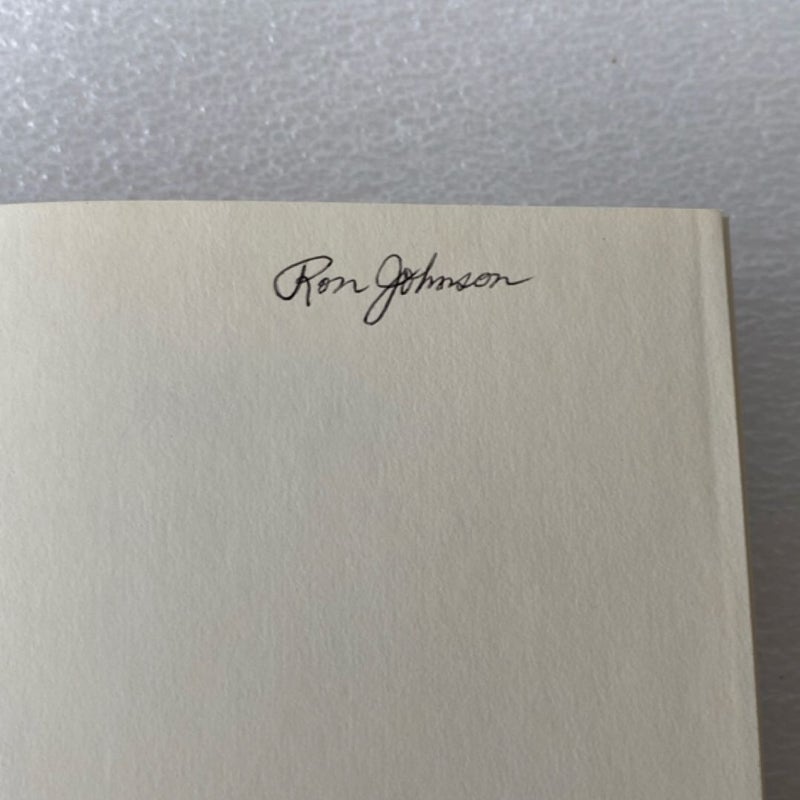 Ron Johnson